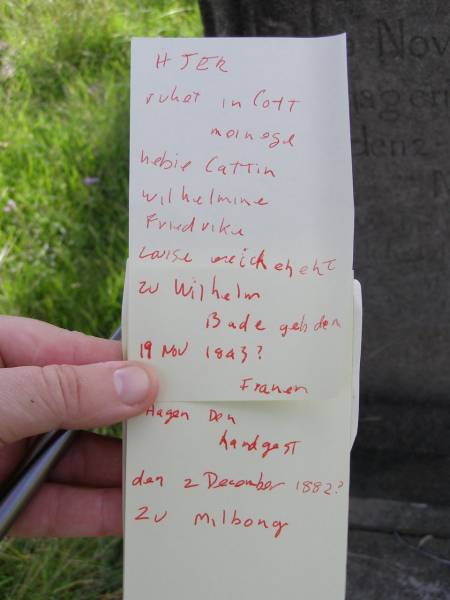 HJER
ruhet in Cott
moinege
hebie Cattin
wilhelmine
Friedrike
Louise
zu Wilhelm
Bade geb den
19 Nov 1843?
Franen
Hagen Den
handgest
den 2 December 1882?
Zu Milbong
Nov
hager
denz